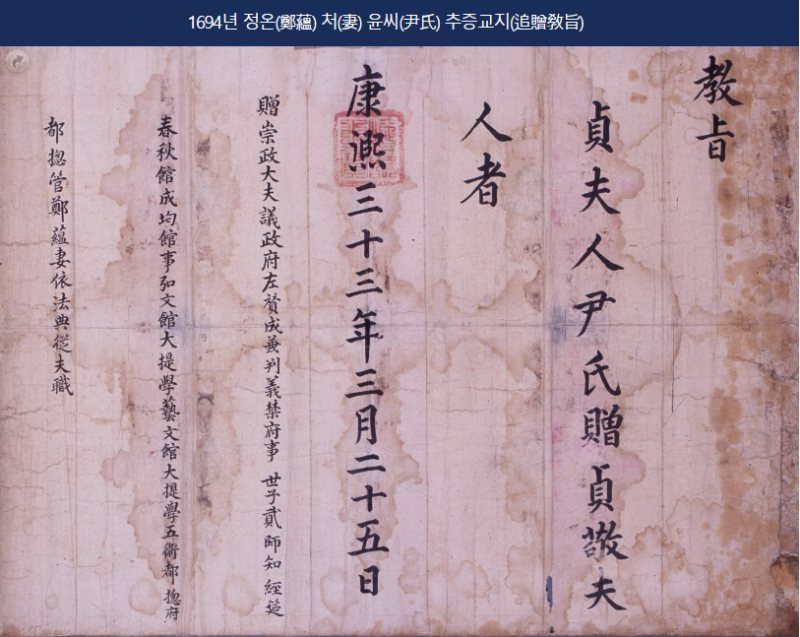 1694년 정온(鄭蘊) 처(妻) 윤씨(尹氏) 추증교지(追贈敎旨)
教旨
貞夫人尹氏贈貞敬夫
人者
康熙三十三年三月二十五日
贈崇政大夫議政府左贊成兼判義禁府事 世子貳師知 經筵
春秋館成均館事弘文館大提學藝文館大提學五衛都摠府
都摠管鄭蘊妻依法典從夫職